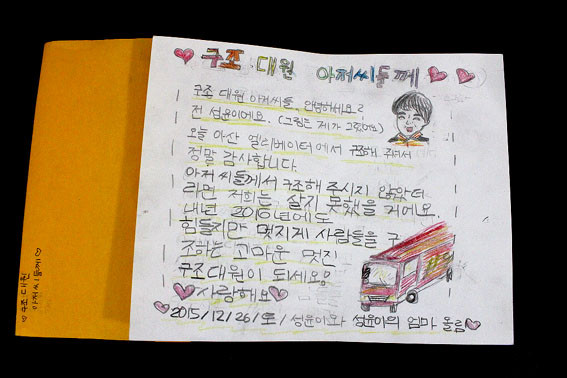 구조 대원 아저씨들께
구조 대원 아저씨들, 안녕하세요?
전 성윤이에요. (그림은 제가 그렸어요)
오늘 아산 엘리베이터에서 구조해 줘서
정말 감사합니다.
아저씨들께서 구조해 주시지 않았더
라면 저희는 살지 못했을 거에요.
내년 2016년에도
힘들지만 멋지게 사람들을 구
조하는 고마운 멋진
구조대원이 되세요.
사랑해요
2015/12/26/토/ 성윤이와 성윤이의 엄마 올림
구조대원
아저씨들께